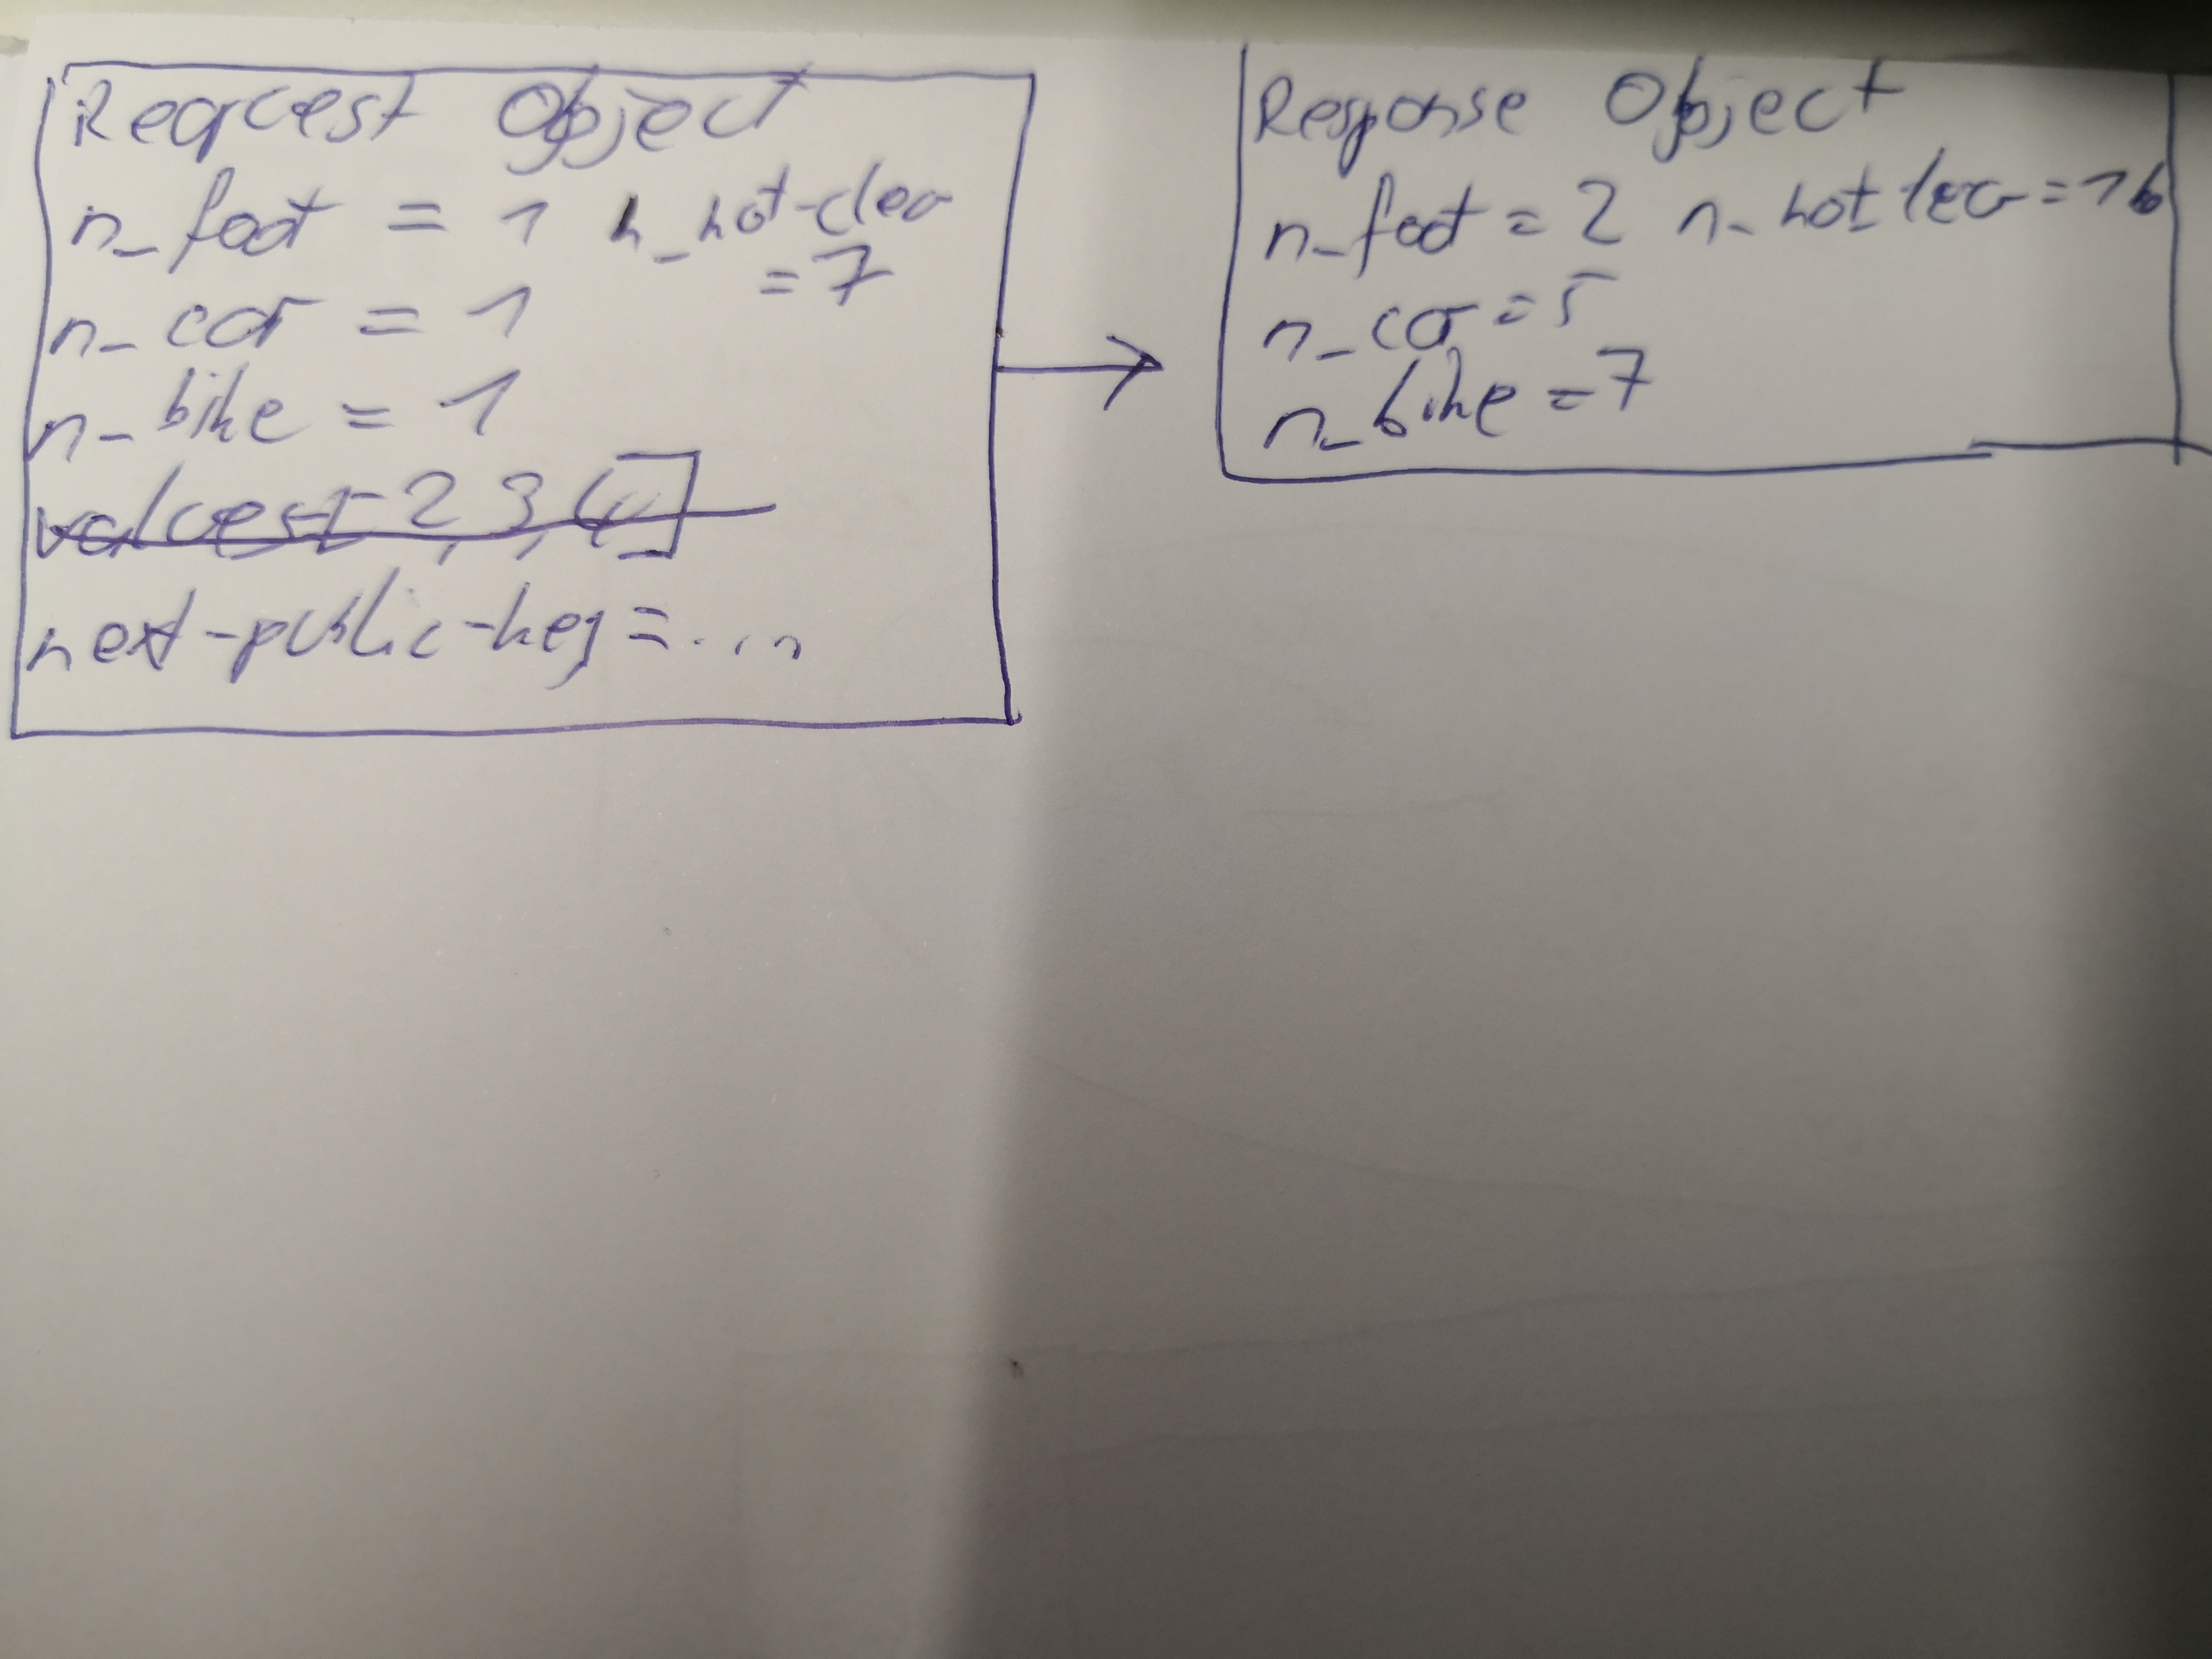 Request Object
n_foot = 1 n_not-clear
= 7
n_car = 1
n_bike = 1
values=[2, 3, 4]
next-public-key = ...
Response Object
n_foot = 2 n_not lear = 16
n_car = 5
n_bike = 7